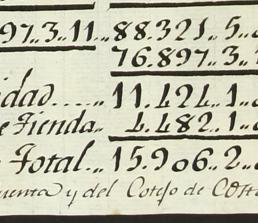 97.. 3.. 11.. 88.321.. 5..
76.897.. 3..
idad..... 11.424.. 1..
e Tienda.. 4.482.. 1..
Total... 15.906.. 2..
uenta y del Cotejo de